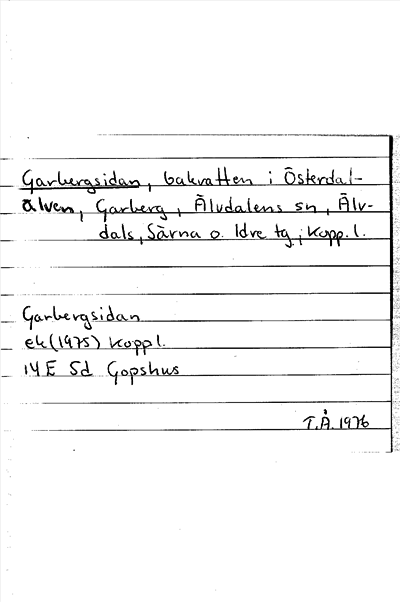 Garbergsidan, bakvatten i Österdal-
älven, Garberg, Älvdalens sn, Älv-
dals, Särna o. Idre tg, Kopp. l.
Garbergsidan
ek (1975) Koppl.
14 E Sd Gopshus
T.Å. 1976